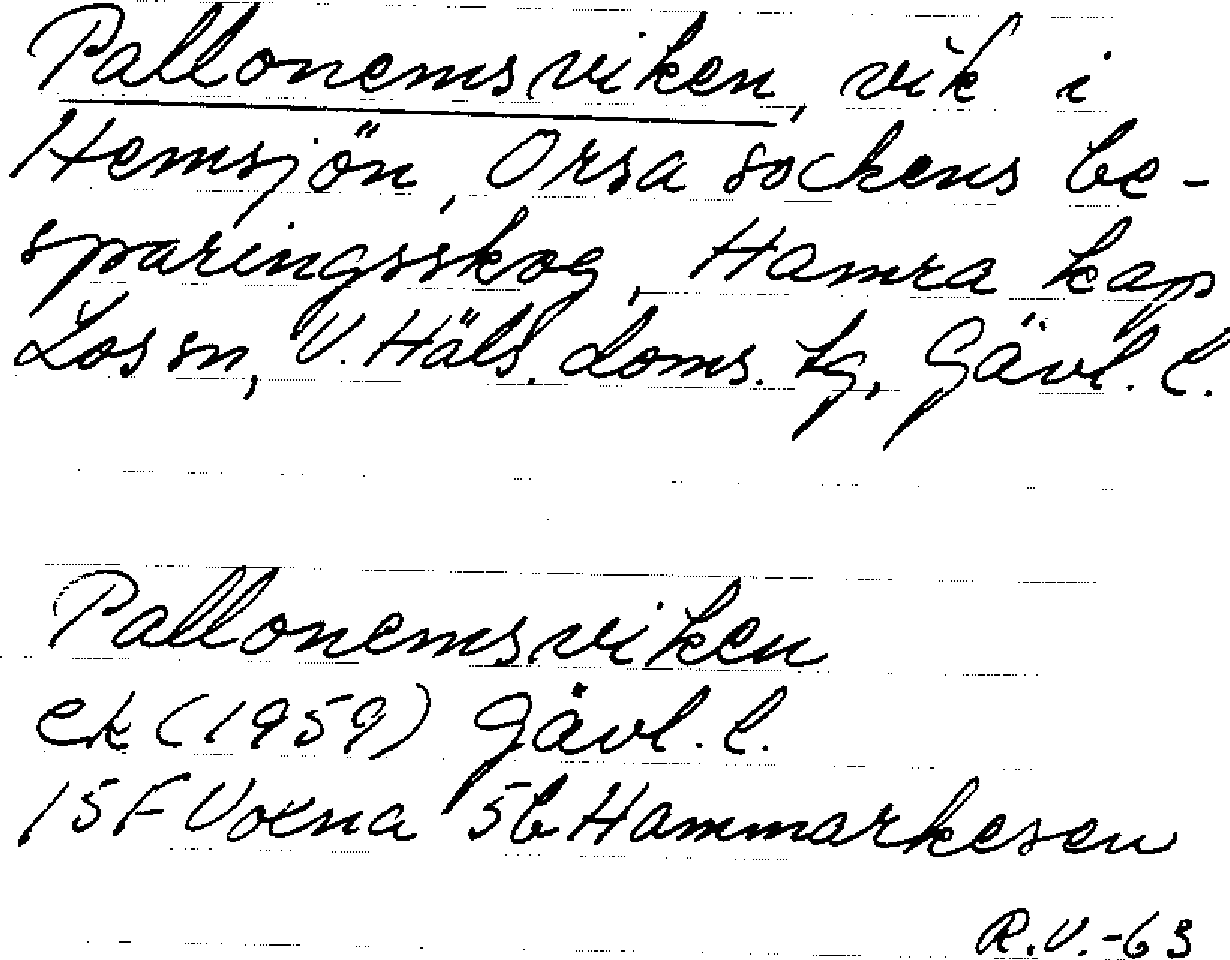 Pallonemsviken, vik i
Hemsjön, Orsa sockens be-
sparingsskog, Hamra kap
Los sn, V. Häls. doms. tg, Gävl. l.
Pallonemsviken
ek (1959) Gävl. l.
15F Voxna 5b Hammarkesen
R.V.-63